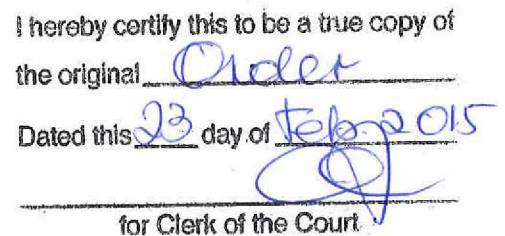 I hereby certify this to be a true copy of
the original Order
Dated this 23 day of Feb. 2015
for Clerk of the Court